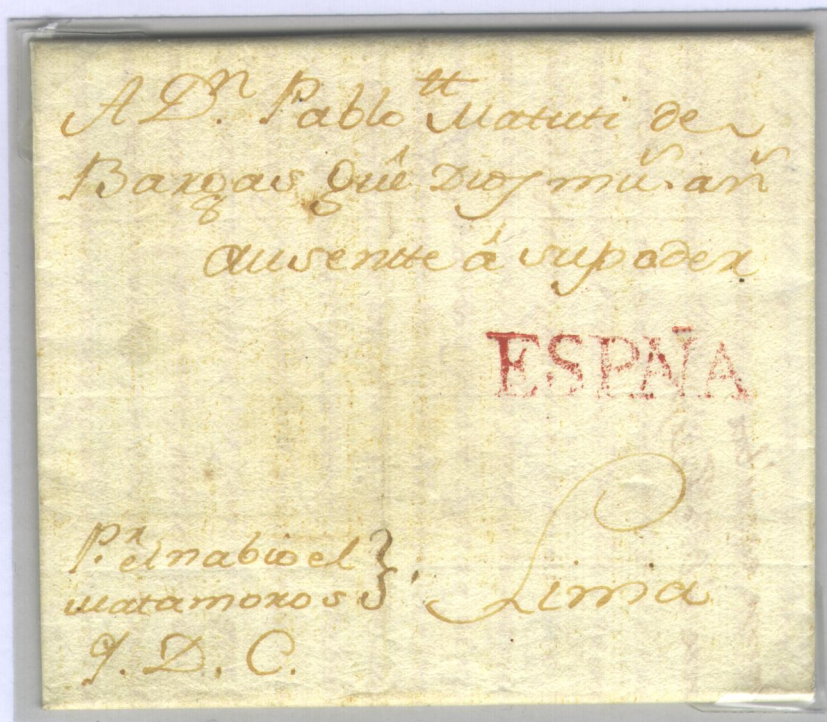 A Dⁿ. Pablo ᵗᵗ Matuti de
Bargas Quê Dios mů. añ
ausentte â supoder
ESPAÑA
P.ʳ el nabio el
Matamoros
Lima
Q. D. C.